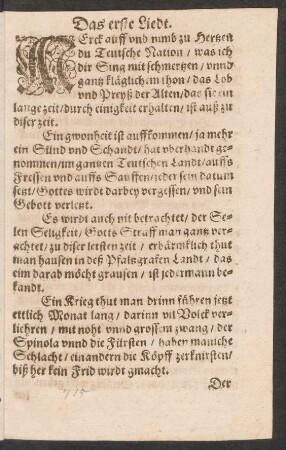 Das erste Liedt.
MErck auff vnd nimb zu Hertzen
du Teutsche Nation / was ich
dir Sing mit schmertzen / vnnd
gantz kläglichem thon / das Lob
vnd Preyß der Alten / das sie ein
lange zeit / durch einigkeit erhalten / ist auß zu
diser zeit.
Ein gwonheit ist auffkommen / ja mehr
ein Sünd vnd Schandt / hat vberhandt ge-
nommen / im gantzen Teutschen Landt / auffs
Fressen vnd auffs Sauffen / jeder sein datum
setzt / Gottes wirdt darbey vergessen / vnd sein
Gebott verletzt.
Es wirdt auch nit betrachtet / der See-
len Seligkeit / Gotts Straff man gantz ver-
achtet / zu diser letsten zeit / erbärmklich thut
man hausen in deß Pfaltzgrafen Landt / das
eim darab möcht grausen / ist jedermann be-
kandt.
Ein Krieg thut man drinn führen jetzt
ettlich Monat lang / darinn vil Volck ver-
liehren / mit noht vnnd grossem zwang / der
Spinola vnnd die Fürsten / haben maniche
Schlacht / einandern die Köpff zerknirsten /
biß her kein Frid wirdt gmacht.
Der